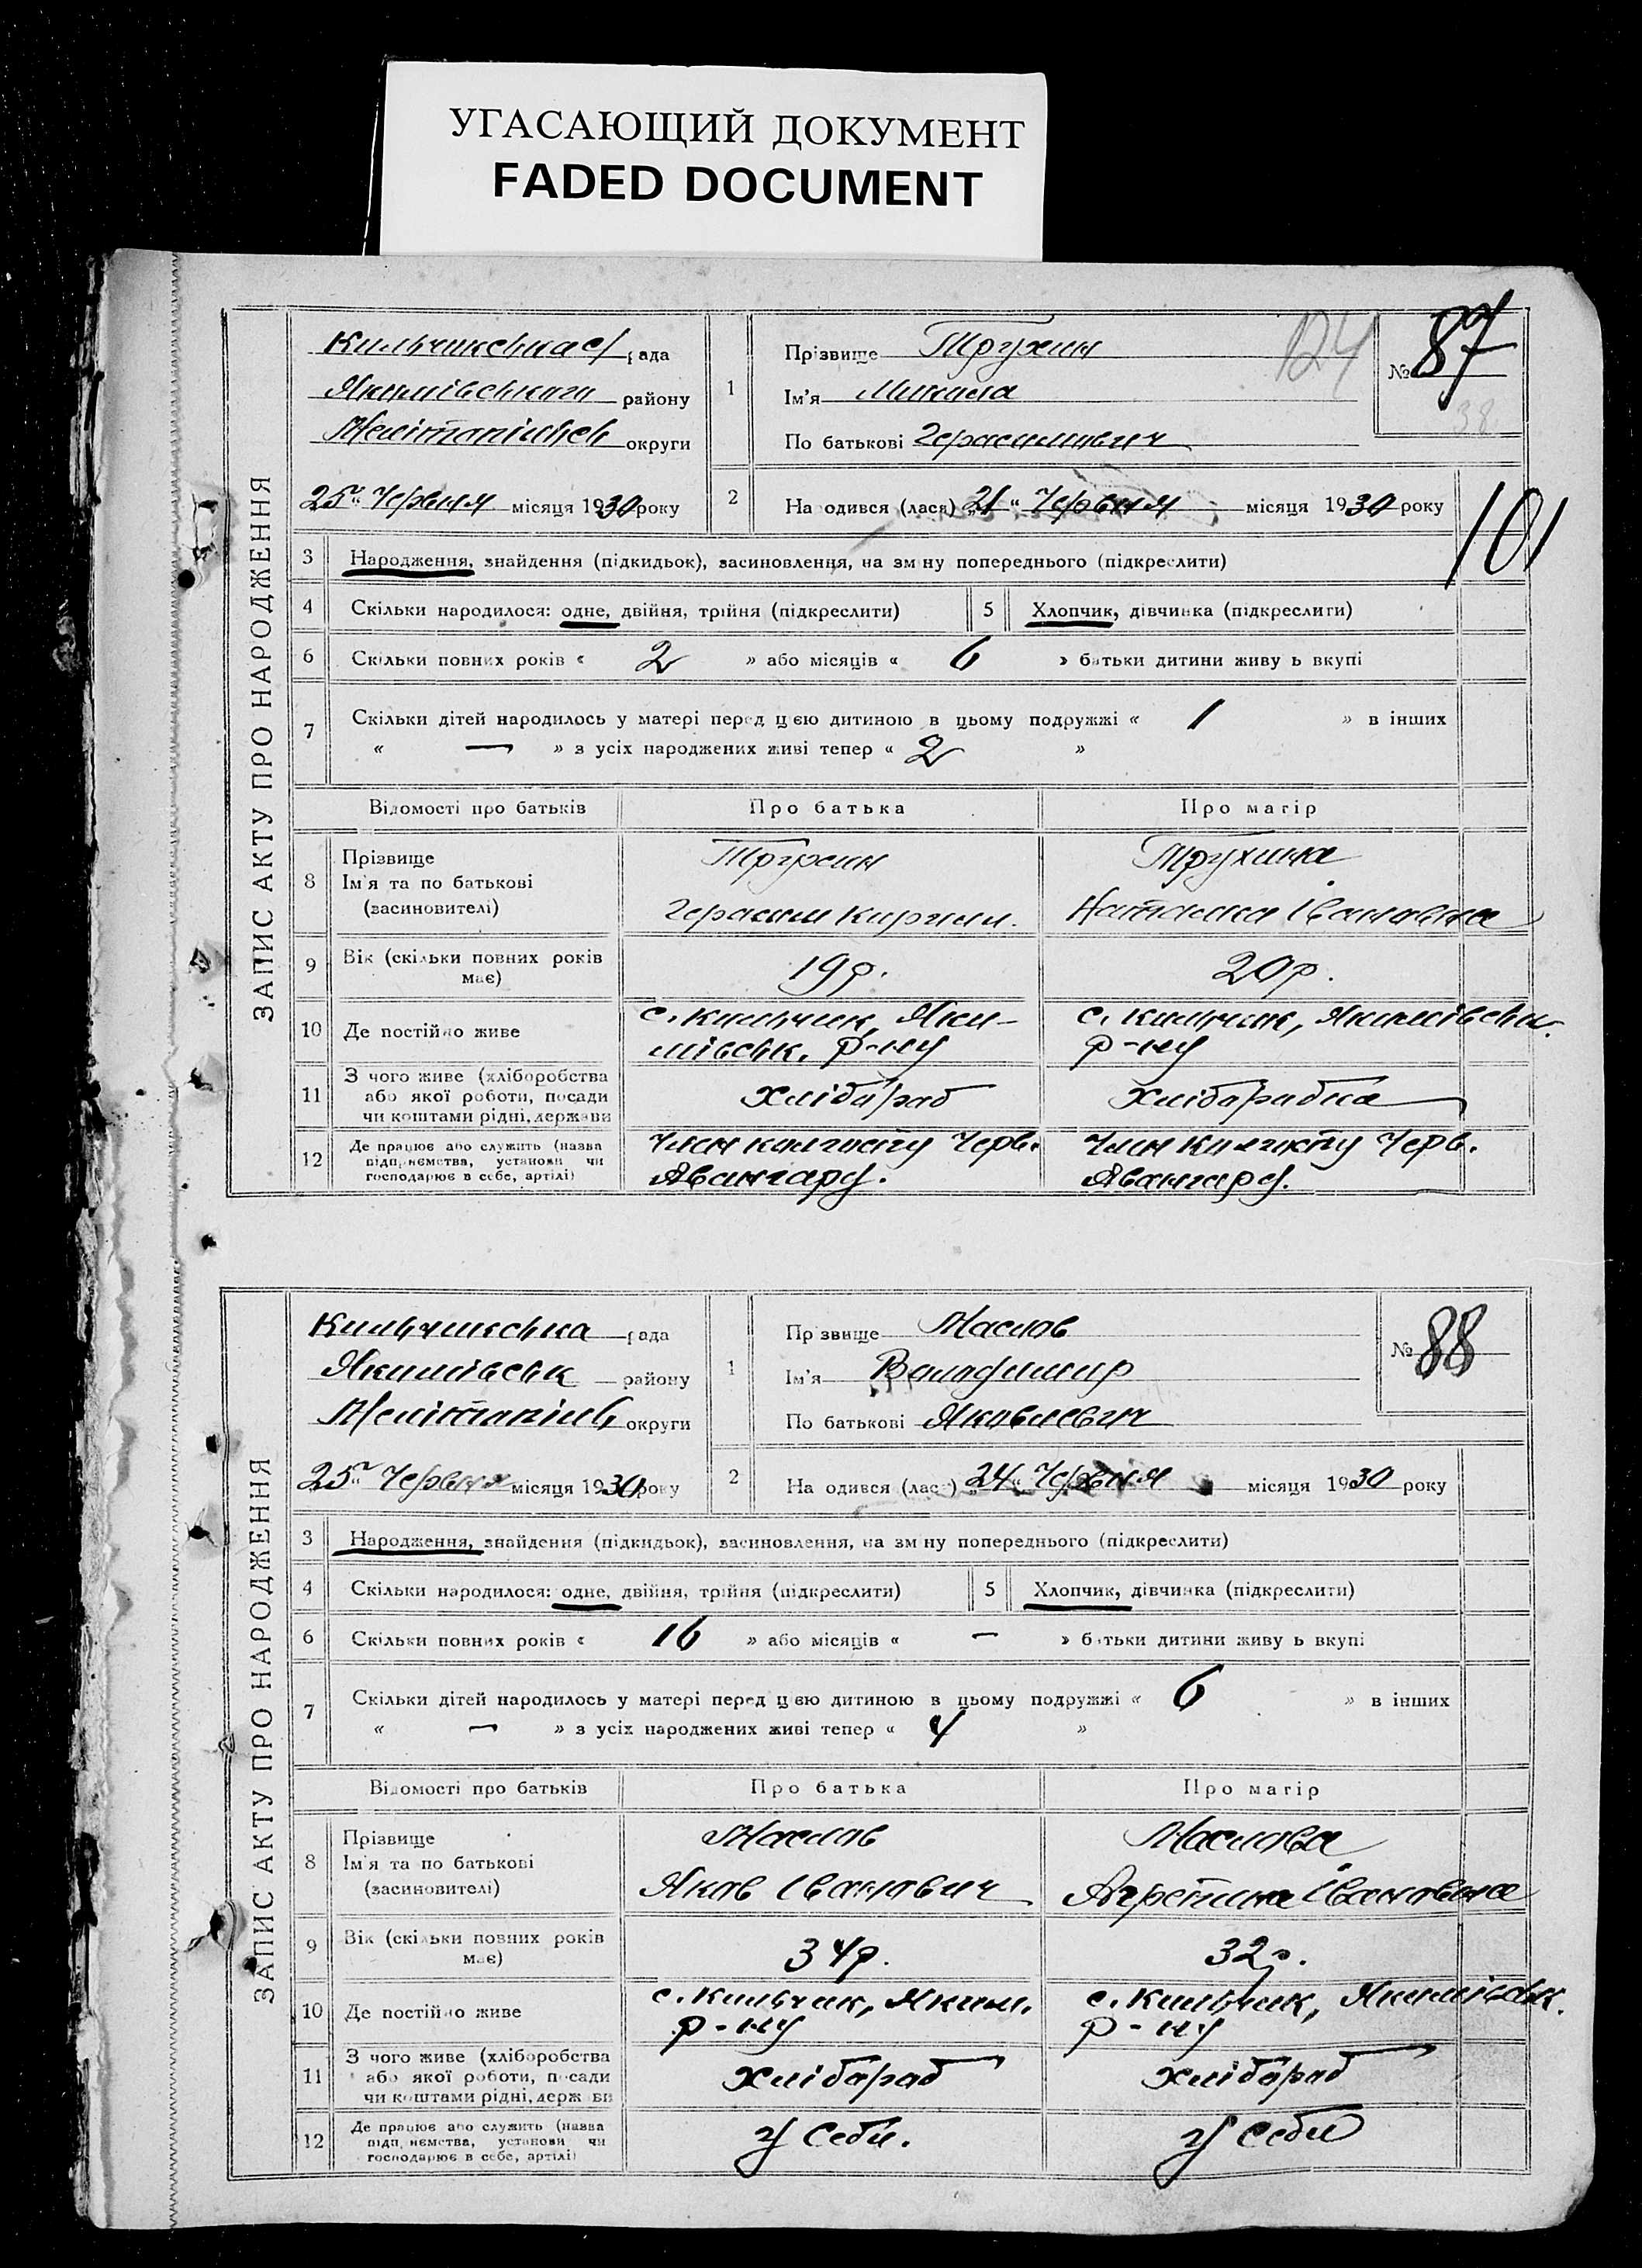 УГАСАЮЩИЙ ДОКУМЕНТ
FADED DOCUMENT
ЗАПИС АКТУ ПРО НАРОДЖЕННЯ
Кильчикська с/рада
Якимівського району
Мелітопільськ округи
"25" Червня місяця 1930 року
1
Прізвище Трухин
Ім'я Микола
По батькові Герасимович
124
№ 87
38
2
На одився (лася) "21" Червня місяця 1930 року
101
3 Народження, знайдення (підкидьок), засиновлення, на зм ну попереднього (підкреслити)
4 Скільки народилося: одне, двійня, трійня (підкреслити) 5 Хлопчик, дівчинка (підкреслити)
6 Скільки повних років « 2 » або місяців « 6 » батьки дитини живу ь вкупі
7 Скільки дітей народилось у матері перед цією дитиною в цьому подружжі « 1 » в інших
« — » з усіх народжених живі тепер « 2 »
Відомості про батьків Про батька Про матір
8 Прізвище
Ім'я та по батькові
(засиновителі)
Трухин
Герасим Кирил.
Трухина
Наталка Івановна
9 Вік (скільки повних років
має)
19 р.
20 р.
10 Де постійно живе
с. Кильчик, Яки-
мівськ. р-ну
с. Кильчик, Якимівськ.
р-ну
11 З чого живе (хліборобства
або якої роботи, посади
чи коштами рідні, держави
Хлібороб
Хліборобка
12 Де працює або служить (назва
підприємства, установи чи
господарює в себе, артілі)
Член колгоспу Черв.
Авангард.
Член колгоспу Черв.
Авангард.
ЗАПИС АКТУ ПРО НАРОДЖЕННЯ
Кильчикська рада
Якимівськ району
Мелітопільськ округи
"25" Червня місяця 1930 року
1
Пр звище Маслов
Ім'я Володимир
По батькові Яковлевич
№ 88
2
На одився (лас ) "24" Червня місяця 1930 року
3 Народження, знайдення (підкидьок), засиновлення, на зм ну попереднього (підкреслити)
4 Скільки народилося: одне, двійня, трійня (підкреслити) 5 Хлопчик, дівчинка (підкреслити)
6 Скільки повних років « 16 » або місяців « — » батьки дитини живу ь вкупі
7 Скільки дітей народилось у матері перед цією дитиною в цьому подружжі « 6 » в інших
« — » з усіх народжених живі тепер « 4 »
Відомості про батьків Про батька Про матір
8 Прізвище
Ім'я та по батькові
(засиновителі)
Маслов
Яков Іванович
Маслова
Агрепина Івановна
9 Вік (скільки повних років
має)
34 р.
32 р.
10 Де постійно живе
с. Кильчик, Яким.
р-ну
с. Кильчик, Якимівськ.
р-ну
11 З чого живе (хліборобства
або якої роботи, посади
чи коштами рідні, держави
Хлібороб
Хлібороб
12 Де працює або служить (назва
підприємства, установи чи
господарює в себе, артілі)
У себи.
У себи